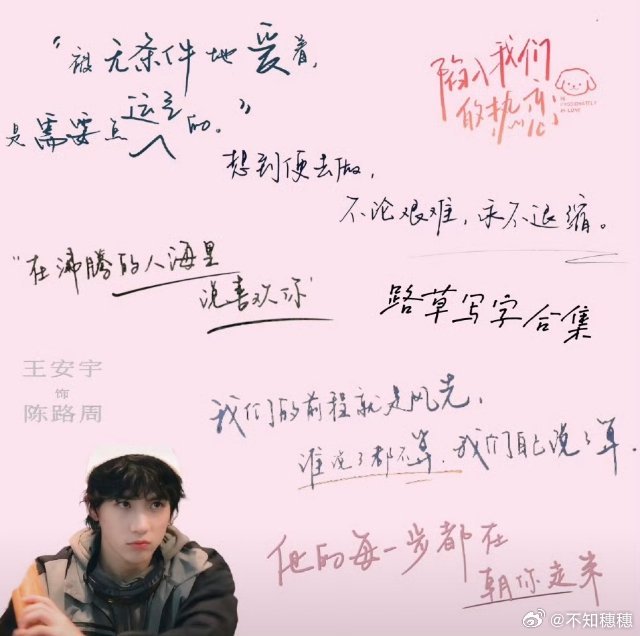 “被无条件地爱着，
是需要点运气的。”
陷入我们
的热恋
IN
PASSIONATELY
IN LOVE
想到便去做，
不论艰难，永不退缩。
“在沸腾的人海里
说喜欢你”
路草写字合集
王安宇
饰
陈路周
我们的前程就是风光，
谁说了都不算，我们自己说了算．
他的每一步都在
朝你走来
@不知穗穗